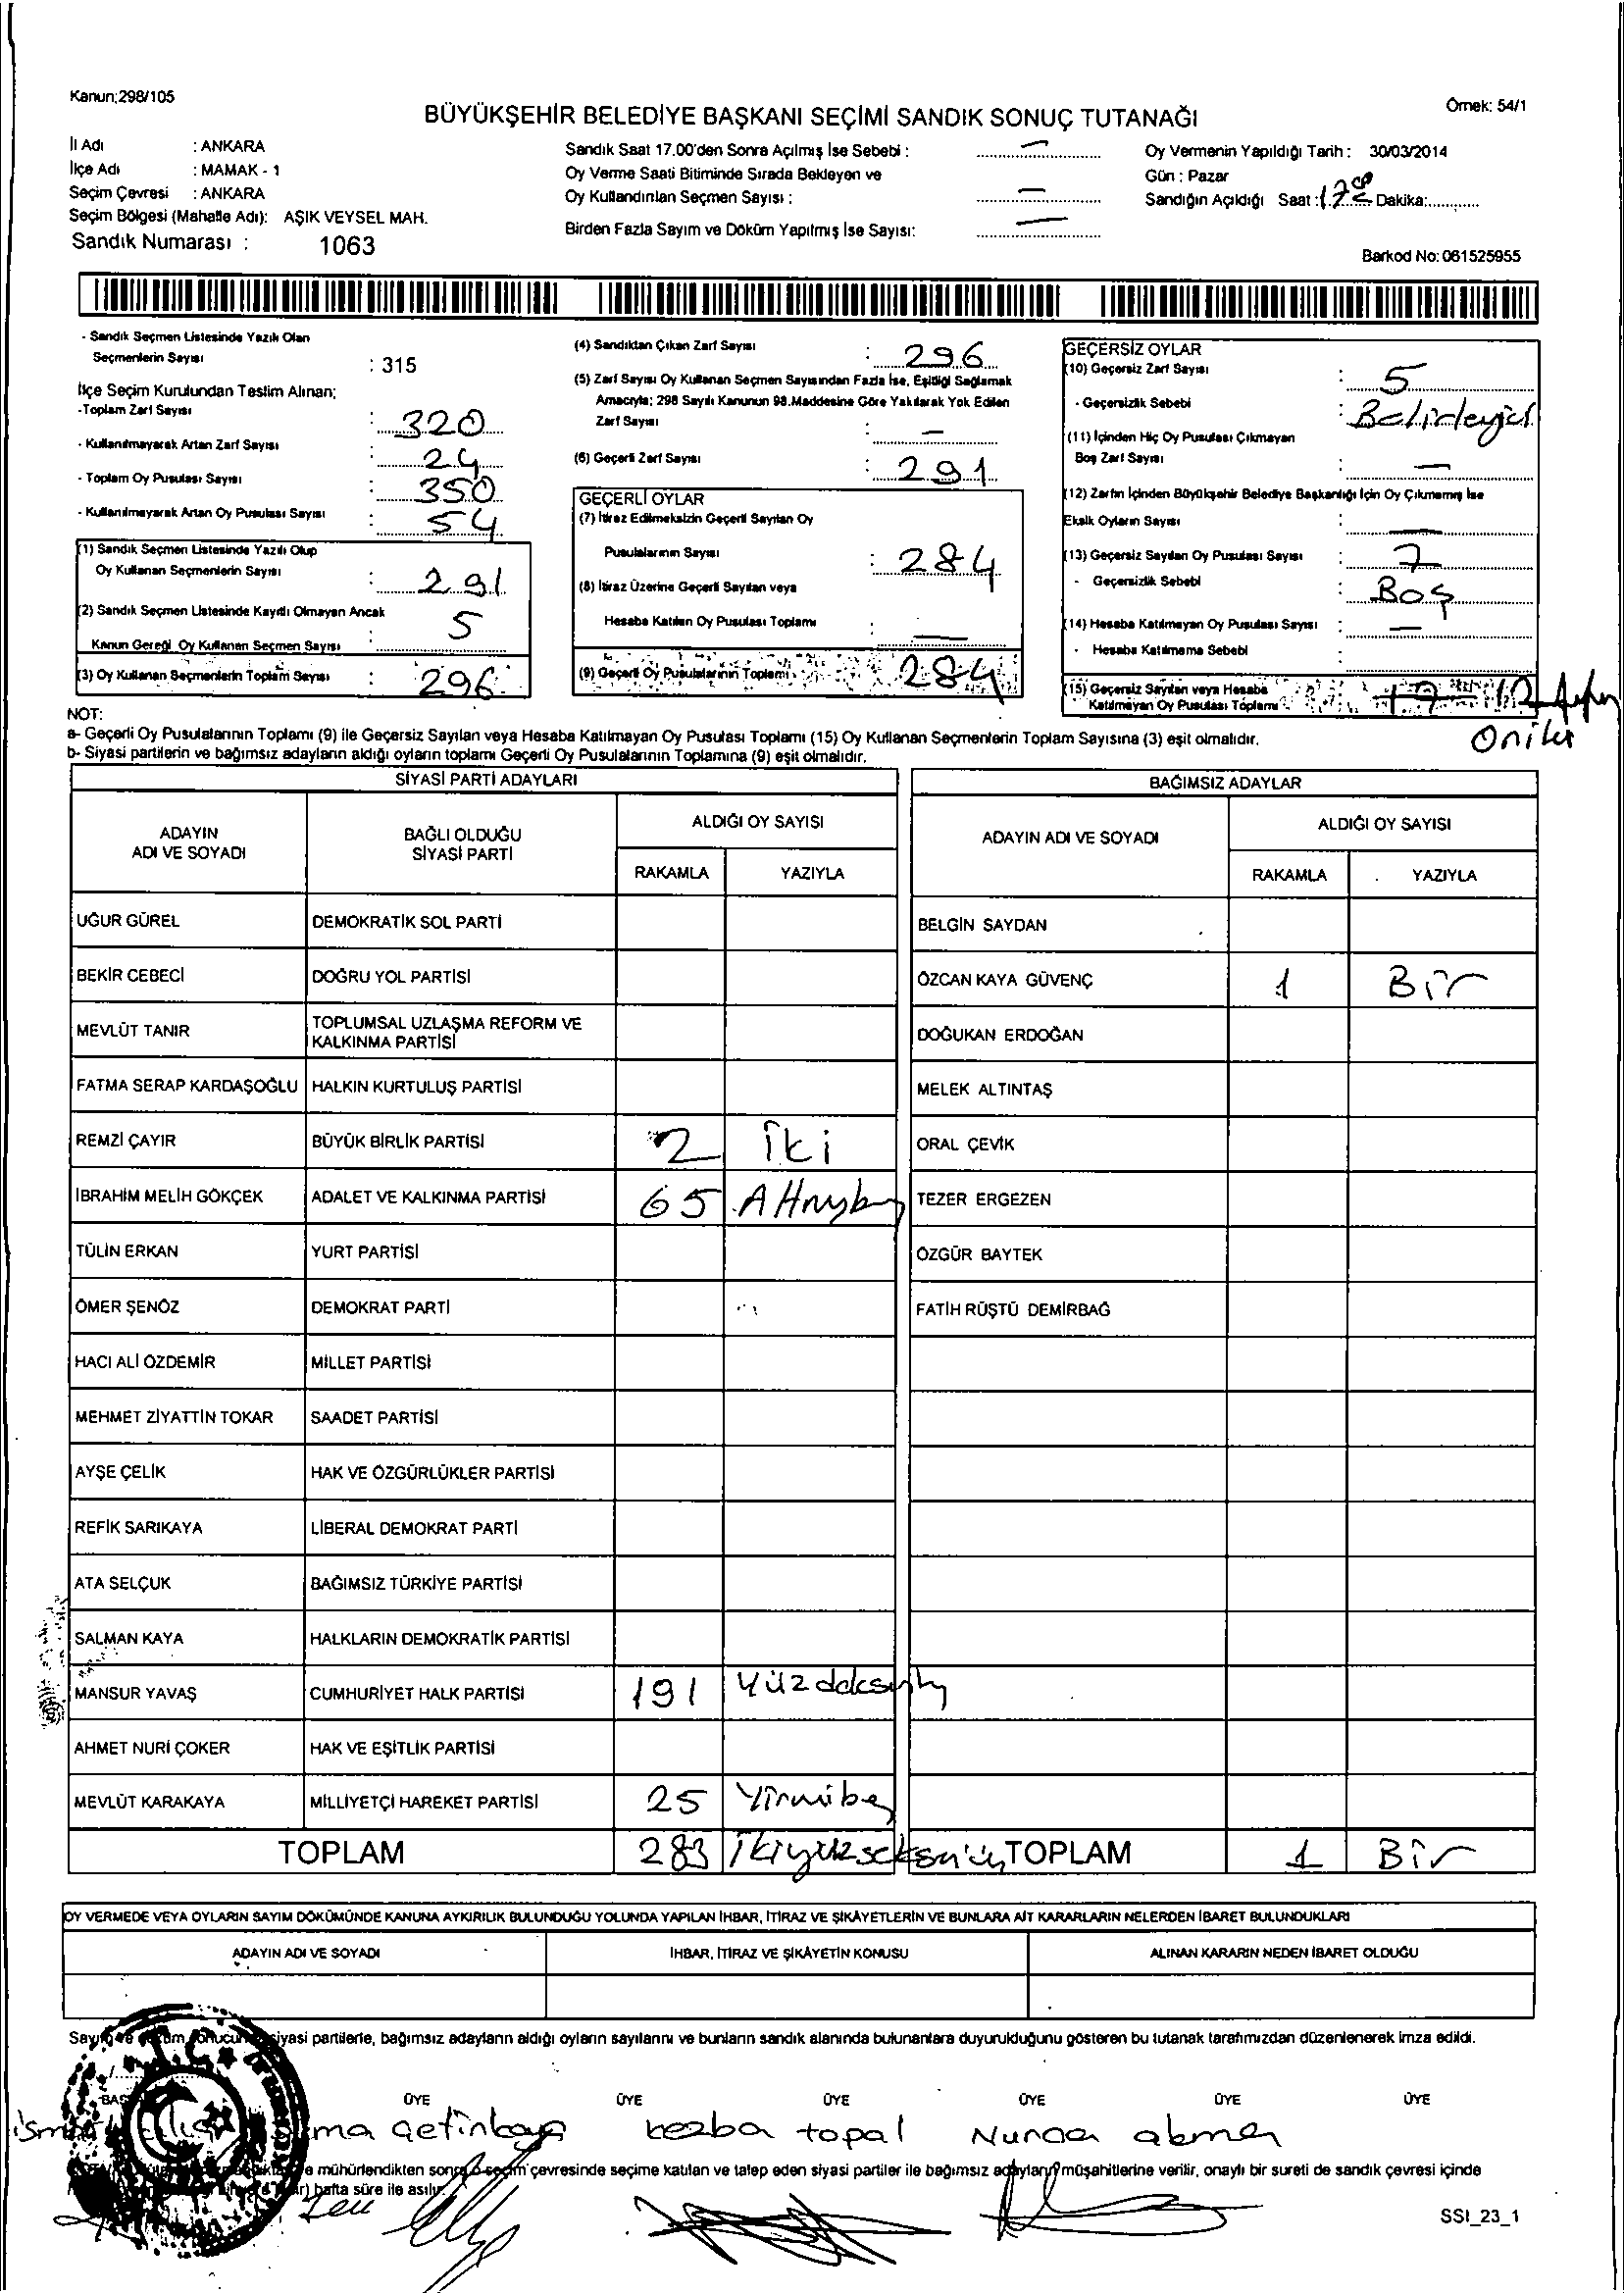 Kanun;298/105
Örnek: 54/1
BÜYÜKŞEHİR BELEDİYE BAŞKANI SEÇİMİ SANDIK SONUÇ TUTANAĞI
İl Adı : ANKARA
İlçe Adı : MAMAK - 1
Seçim Çevresi : ANKARA
Seçim Bölgesi (Mahalle Adı): AŞIK VEYSEL MAH.
Sandık Numarası : 1063
Sandık Saat 17.00'den Sonra Açılmış İse Sebebi : —
Oy Verme Saati Bitiminde Sırada Bekleyen ve
Oy Kullandırılan Seçmen Sayısı : —
Birden Fazla Sayım ve Döküm Yapılmış İse Sayısı: —
Oy Vermenin Yapıldığı Tarih : 30/03/2014
Gün : Pazar
Sandığın Açıldığı Saat : 17 Dakika:
Barkod No: 061525955
- Sandık Seçmen Listesinde Yazılı Olan
Seçmenlerin Sayısı : 315
İlçe Seçim Kurulundan Teslim Alınan;
-Toplam Zarf Sayısı : 320
- Kullanılmayarak Artan Zarf Sayısı : 24
- Toplam Oy Pusulası Sayısı : 350
- Kullanılmayarak Artan Oy Pusulası Sayısı : 54
(1) Sandık Seçmen Listesinde Yazılı Olup
Oy Kullanan Seçmenlerin Sayısı : 291
(2) Sandık Seçmen Listesinde Kaydı Olmayan Ancak
Kanun Gereği Oy Kullanan Seçmen Sayısı : 5
(3) Oy Kullanan Seçmenlerin Toplam Sayısı : 296
(4) Sandıktan Çıkan Zarf Sayısı : 296
(5) Zarf Sayısı Oy Kullanan Seçmen Sayısından Fazla İse, Eşitliği Sağlamak
Amacıyla; 298 Sayılı Kanunun 98.Maddesine Göre Yakılarak Yok Edilen
Zarf Sayısı : —
(6) Geçerli Zarf Sayısı : 291
GEÇERLİ OYLAR
(7) İtiraz Edilmeksizin Geçerli Sayılan Oy
Pusulalarının Sayısı : 284
(8) İtiraz Üzerine Geçerli Sayılan veya
Hesaba Katılan Oy Pusulası Toplamı : —
(9) Geçerli Oy Pusulalarının Toplamı : 284
GEÇERSİZ OYLAR
(10) Geçersiz Zarf Sayısı : 5
- Geçersizlik Sebebi : Belirleyici
(11) İçinden Hiç Oy Pusulası Çıkmayan
Boş Zarf Sayısı : —
(12) Zarfın İçinden Büyükşehir Belediye Başkanlığı İçin Oy Çıkmamış İse
Eksik Oyların Sayısı : —
(13) Geçersiz Sayılan Oy Pusulası Sayısı : 7
- Geçersizlik Sebebi : Boş
(14) Hesaba Katılmayan Oy Pusulası Sayısı : —
- Hesaba Katılmama Sebebi :
(15) Geçersiz Sayılan veya Hesaba
Katılmayan Oy Pusulası Toplamı : 12
Oniki
NOT:
a- Geçerli Oy Pusulalarının Toplamı (9) ile Geçersiz Sayılan veya Hesaba Katılmayan Oy Pusulası Toplamı (15) Oy Kullanan Seçmenlerin Toplam Sayısına (3) eşit olmalıdır.
b- Siyasi partilerin ve bağımsız adayların aldığı oyların toplamı Geçerli Oy Pusulalarının Toplamına (9) eşit olmalıdır.
SİYASİ PARTİ ADAYLARI
ADAYIN ADI VE SOYADI
BAĞLI OLDUĞU SİYASİ PARTİ
ALDIĞI OY SAYISI
RAKAMLA YAZIYLA
UĞUR GÜREL DEMOKRATİK SOL PARTİ
BEKİR CEBECİ DOĞRU YOL PARTİSİ
MEVLÜT TANIR TOPLUMSAL UZLAŞMA REFORM VE
KALKINMA PARTİSİ
FATMA SERAP KARDAŞOĞLU HALKIN KURTULUŞ PARTİSİ
REMZİ ÇAYIR BÜYÜK BİRLİK PARTİSİ 2 İki
İBRAHİM MELİH GÖKÇEK ADALET VE KALKINMA PARTİSİ 65 Altmışbeş
TÜLİN ERKAN YURT PARTİSİ
ÖMER ŞENÖZ DEMOKRAT PARTİ
HACI ALİ ÖZDEMİR MİLLET PARTİSİ
MEHMET ZİYATTİN TOKAR SAADET PARTİSİ
AYŞE ÇELİK HAK VE ÖZGÜRLÜKLER PARTİSİ
REFİK SARIKAYA LİBERAL DEMOKRAT PARTİ
ATA SELÇUK BAĞIMSIZ TÜRKİYE PARTİSİ
SALMAN KAYA HALKLARIN DEMOKRATİK PARTİSİ
MANSUR YAVAŞ CUMHURİYET HALK PARTİSİ 191
AHMET NURİ ÇOKER HAK VE EŞİTLİK PARTİSİ
MEVLÜT KARAKAYA MİLLİYETÇİ HAREKET PARTİSİ 25 Yirmibeş
TOPLAM 283 İkiyüzseksenüç
BAĞIMSIZ ADAYLAR
ADAYIN ADI VE SOYADI
ALDIĞI OY SAYISI
RAKAMLA YAZIYLA
BELGİN SAYDAN
ÖZCAN KAYA GÜVENÇ 1 Bir
DOĞUKAN ERDOĞAN
MELEK ALTINTAŞ
ORAL ÇEVİK
TEZER ERGEZEN
ÖZGÜR BAYTEK
FATİH RÜŞTÜ DEMİRBAĞ
TOPLAM 1 Bir
OY VERMEDE VEYA OYLARIN SAYIM DÖKÜMÜNDE KANUNA AYKIRILIK BULUNDUĞU YOLUNDA YAPILAN İHBAR, İTİRAZ VE ŞİKÂYETLERİN VE BUNLARA AİT KARARLARIN NELERDEN İBARET BULUNDUKLARI
ADAYIN ADI VE SOYADI İHBAR, İTİRAZ VE ŞİKÂYETİN KONUSU ALINAN KARARIN NEDEN İBARET OLDUĞU
siyasi partilerle, bağımsız adayların aldığı oyların sayılarını ve bunların sandık alanında bulunanlara duyurulduğunu gösteren bu tutanak tarafımızdan düzenlenerek imza edildi.
ÜYE ÜYE ÜYE ÜYE ÜYE ÜYE
Çetinkaya kezban topal Nurcan
mühürlendikten sonra o seçim çevresinde seçime katılan ve talep eden siyasi partiler ile bağımsız adayların müşahitlerine verilir, onaylı bir sureti de sandık çevresi içinde
hafta süre ile asılır.
SSI_23_1